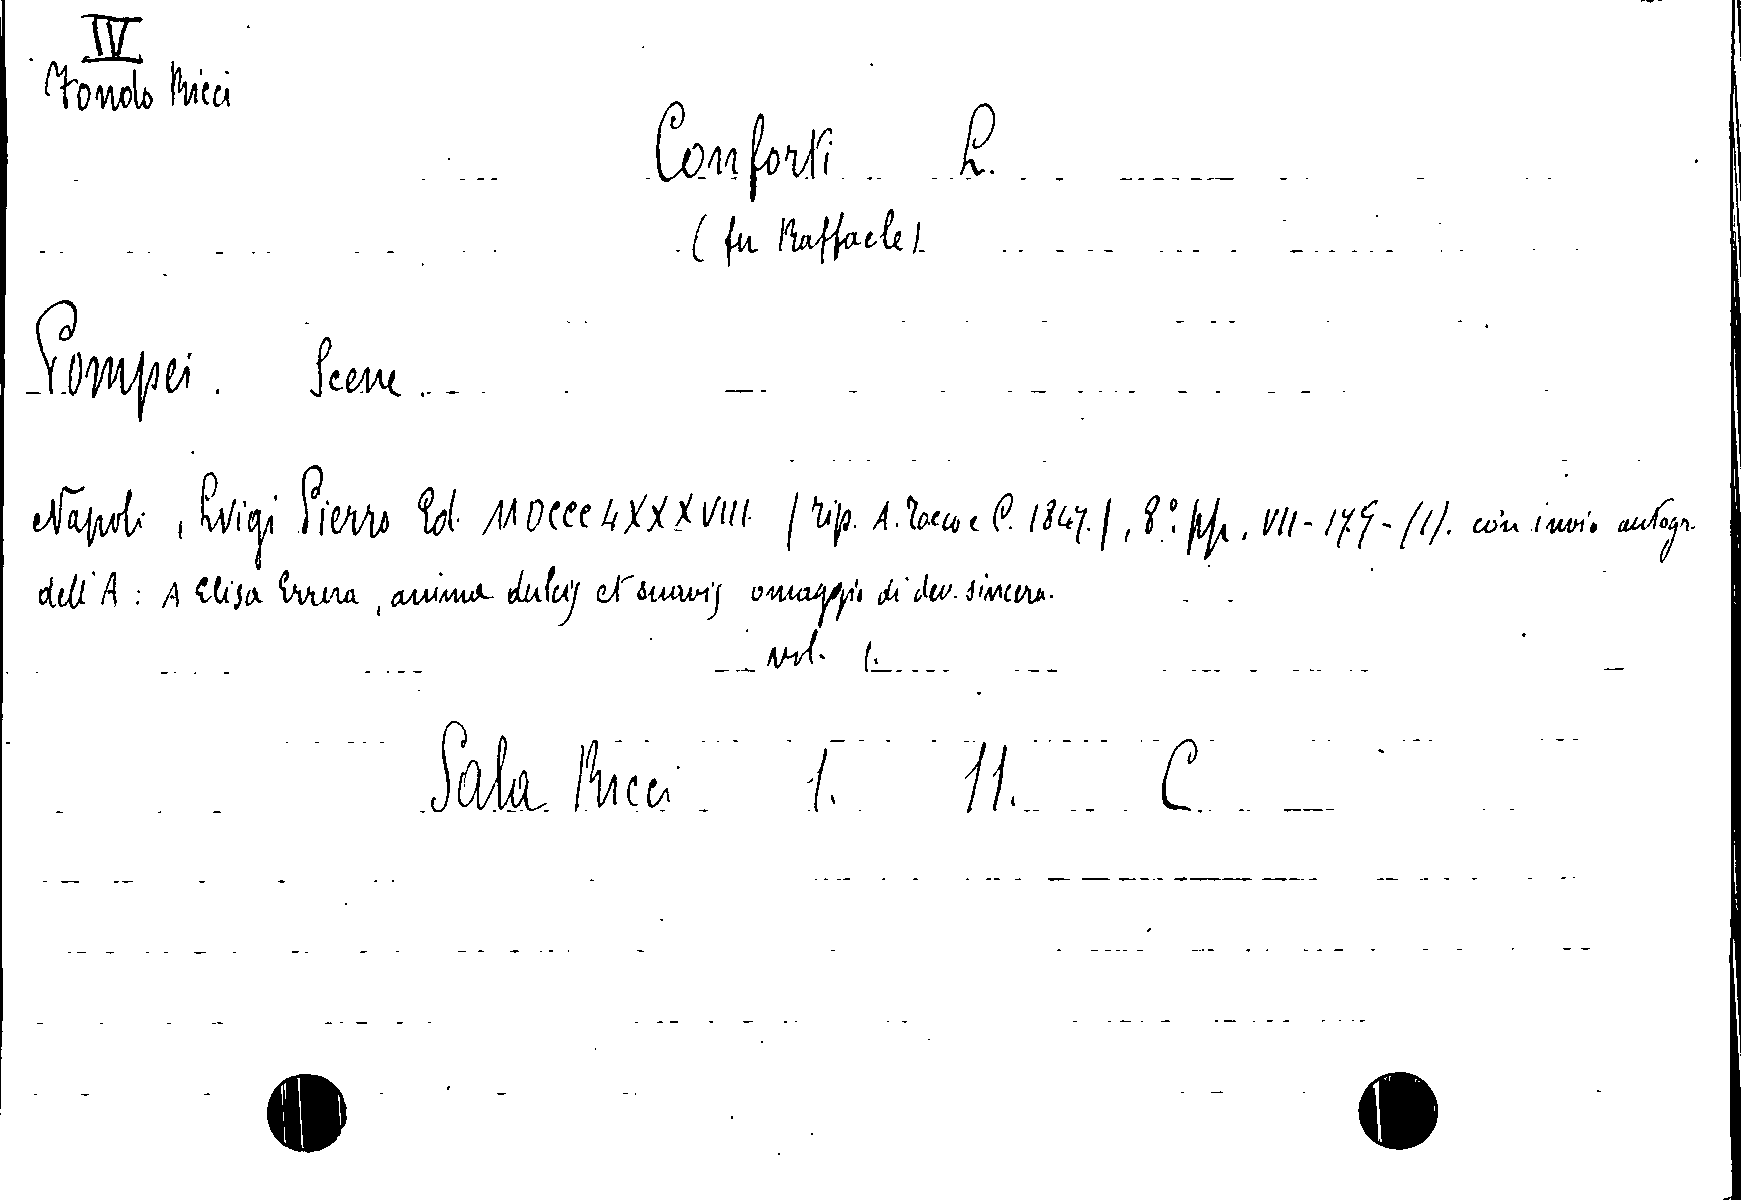 IV
Fondo Ricci
Conforti L.
(fu Raffaele)
Pompei. Scene.
Napoli, Luigi Pierro Ed. MDCCCLXXXVIII. (tip. A. Tocco e C. 1847.), 8° pp. VII-179-(1). con invio autogr.
dell'A: A Elisa Errera, anima dulcis et suavis omaggio di dev. sincera.
vol. 1.
Sala Ricci 1. 11. C